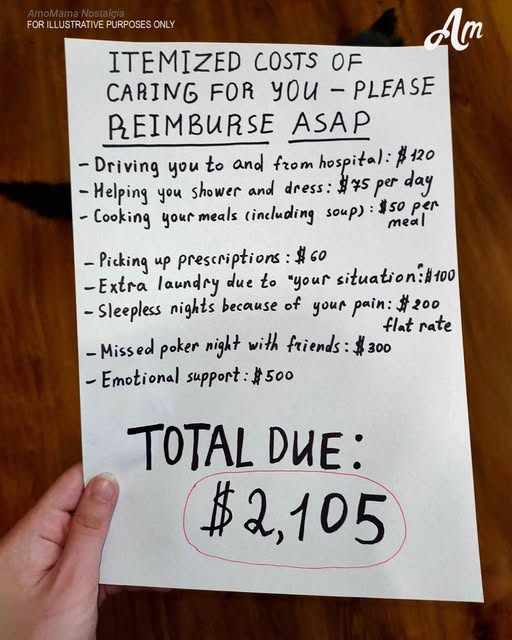 AmoMama Nostalgia
FOR ILLUSTRATIVE PURPOSES ONLY
Am
ITEMIZED COSTS OF
CARING FOR YOU – PLEASE
REIMBURSE ASAP
- Driving you to and from hospital: $120
- Helping you shower and dress: $75 per day
- Cooking your meals (including soup): $50 per
meal
- Picking up prescriptions: $60
- Extra laundry due to "your situation": $100
- Sleepless nights because of your pain: $200
flat rate
- Missed poker night with friends: $300
- Emotional support: $500
TOTAL DUE:
$2,105